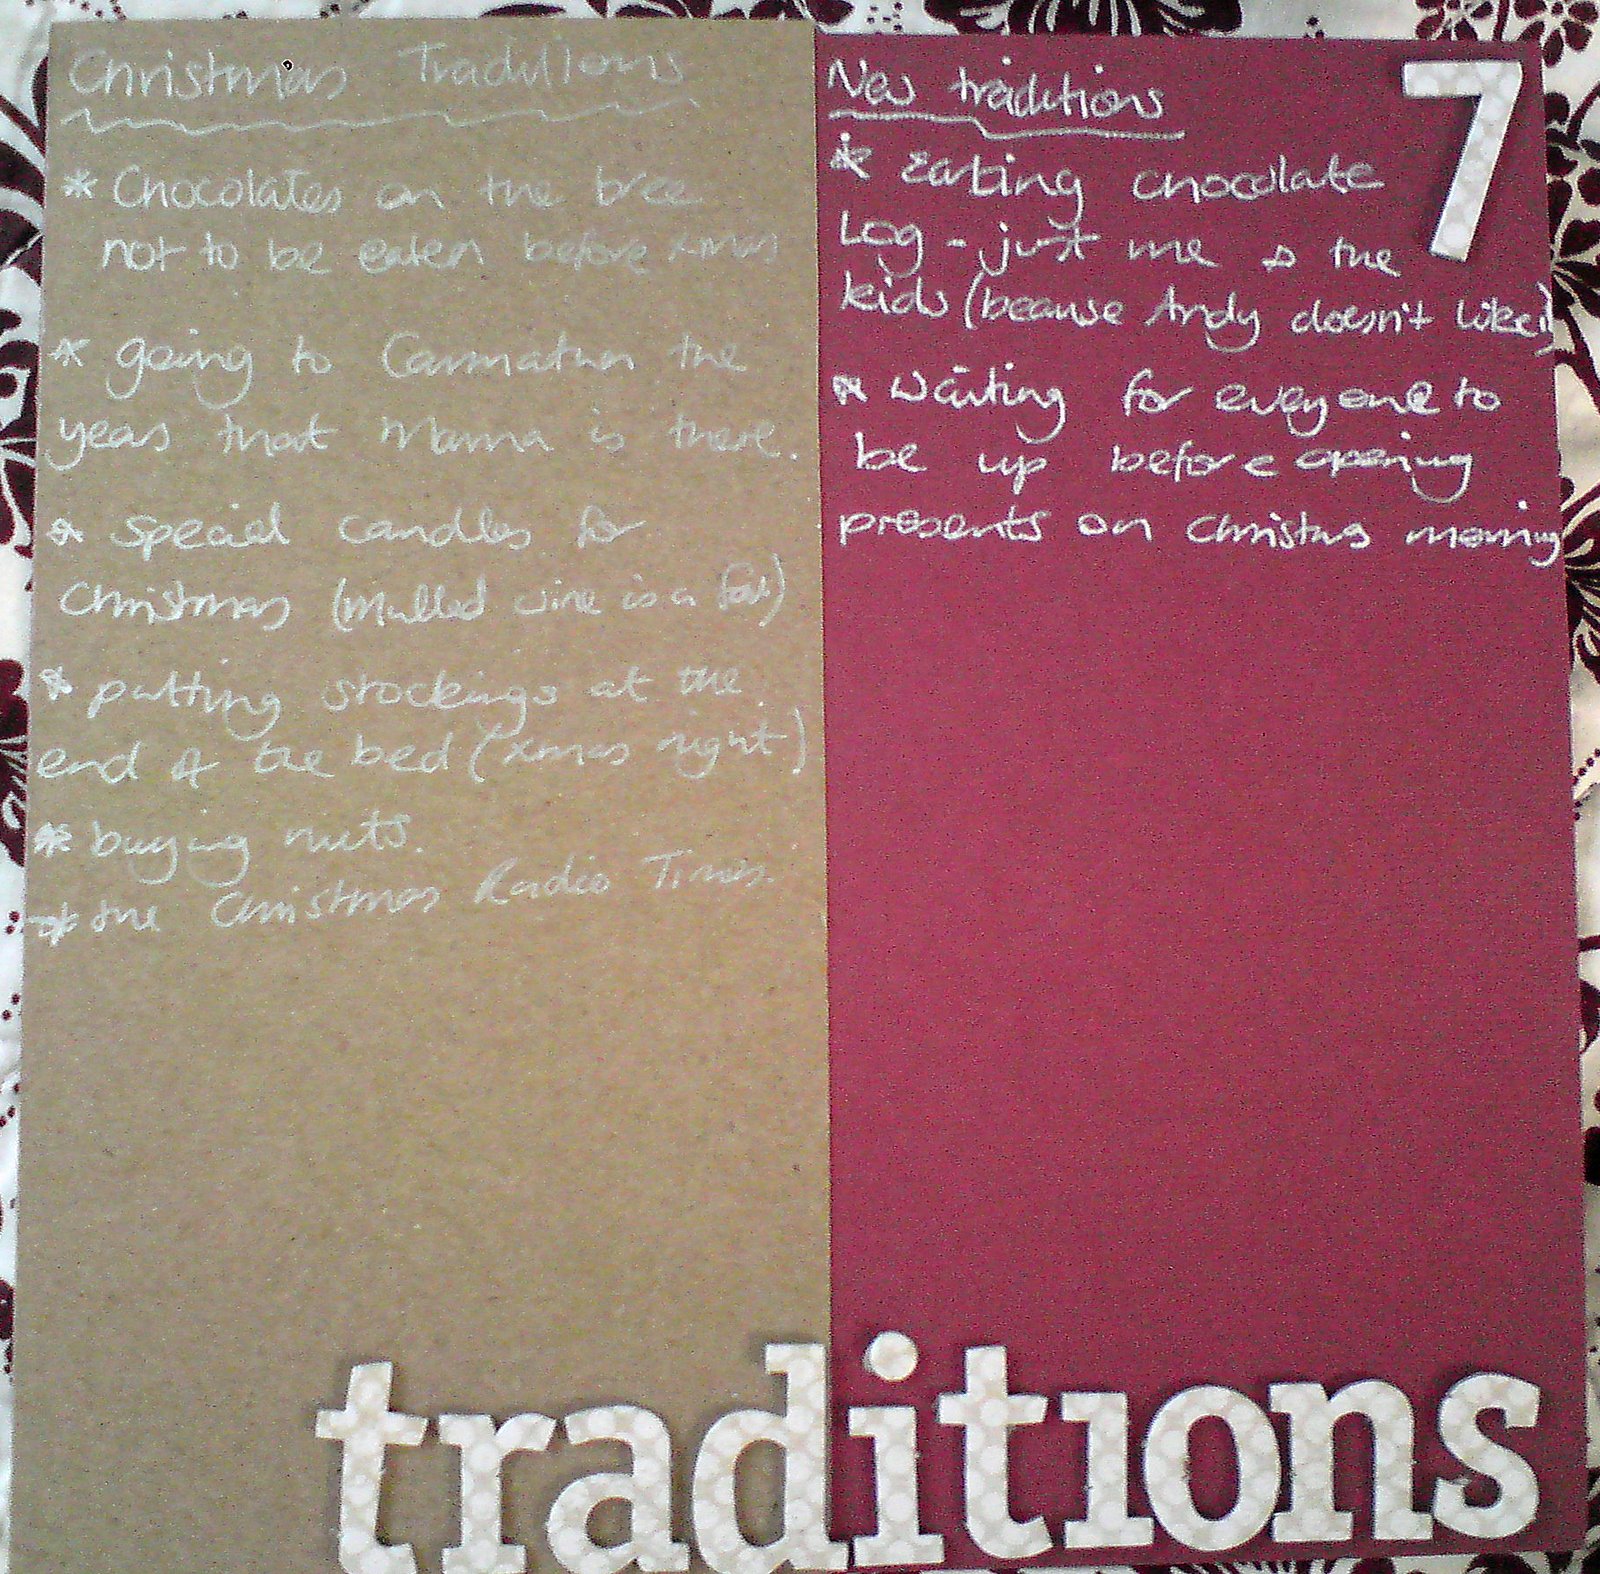 Christmas Traditions
* Chocolates on the tree
not to be eaten before xmas
* going to Carmathen the
years that Mama is there.
* special candles for
Christmas (Mulled wine is a fav)
* putting stockings at the
end of the bed (xmas night)
* buying nuts.
* the Christmas Radio Times.
New traditions
* eating chocolate
Log - just me & the
kids (because Andy doesn't like it)
* waiting for everyone to
be up before opening
presents on Christmas morning
7
traditions